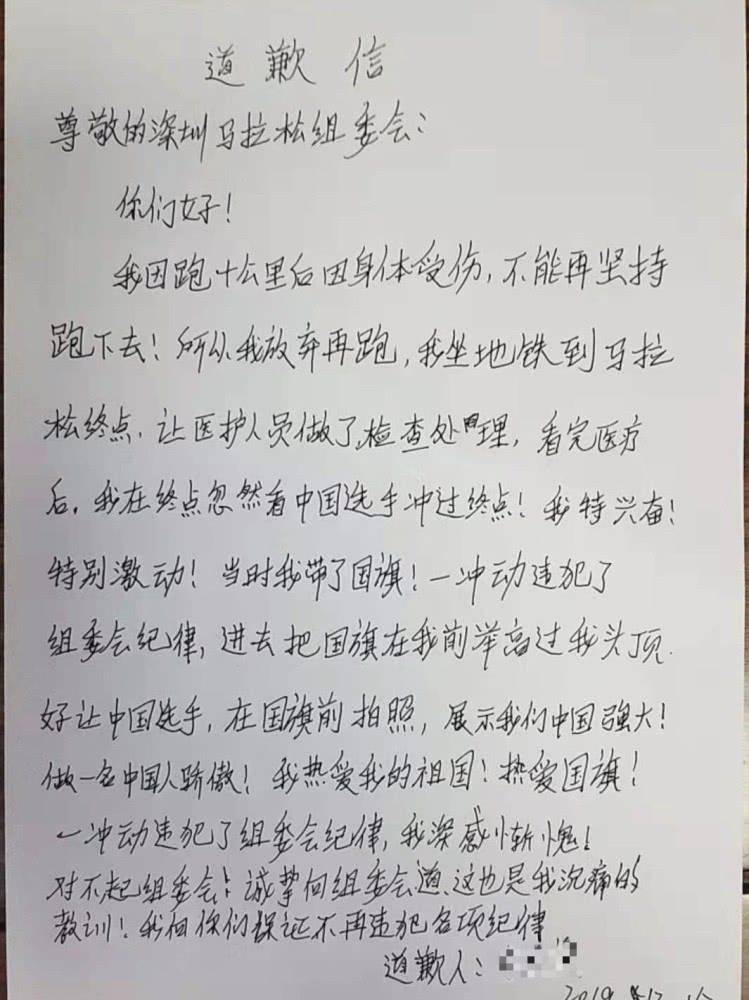 道歉信
尊敬的深圳马拉松组委会：
你们好！
我因跑十公里后因身体受伤，不能再坚持
跑下去！所以我放弃再跑，我坐地铁到马拉
松终点，让医护人员做了检查处理，看完医疗
后。我在终点忽然看中国选手冲过终点！我特兴奋！
特别激动！当时我带了国旗！一冲动违犯了
组委会纪律，进去把国旗在我前举高过我头顶.
好让中国选手，在国旗前拍照，展示我们中国強大！
做一名中国人骄傲！我热爱我的祖国！热爱国旗！
一冲动违犯了组委会纪律，我深感惭愧！
对不起组委会！诚挚向组委会道.这也是我沉痛的
教训！我向你们保证不再违犯各项纪律
道歉人：
2019